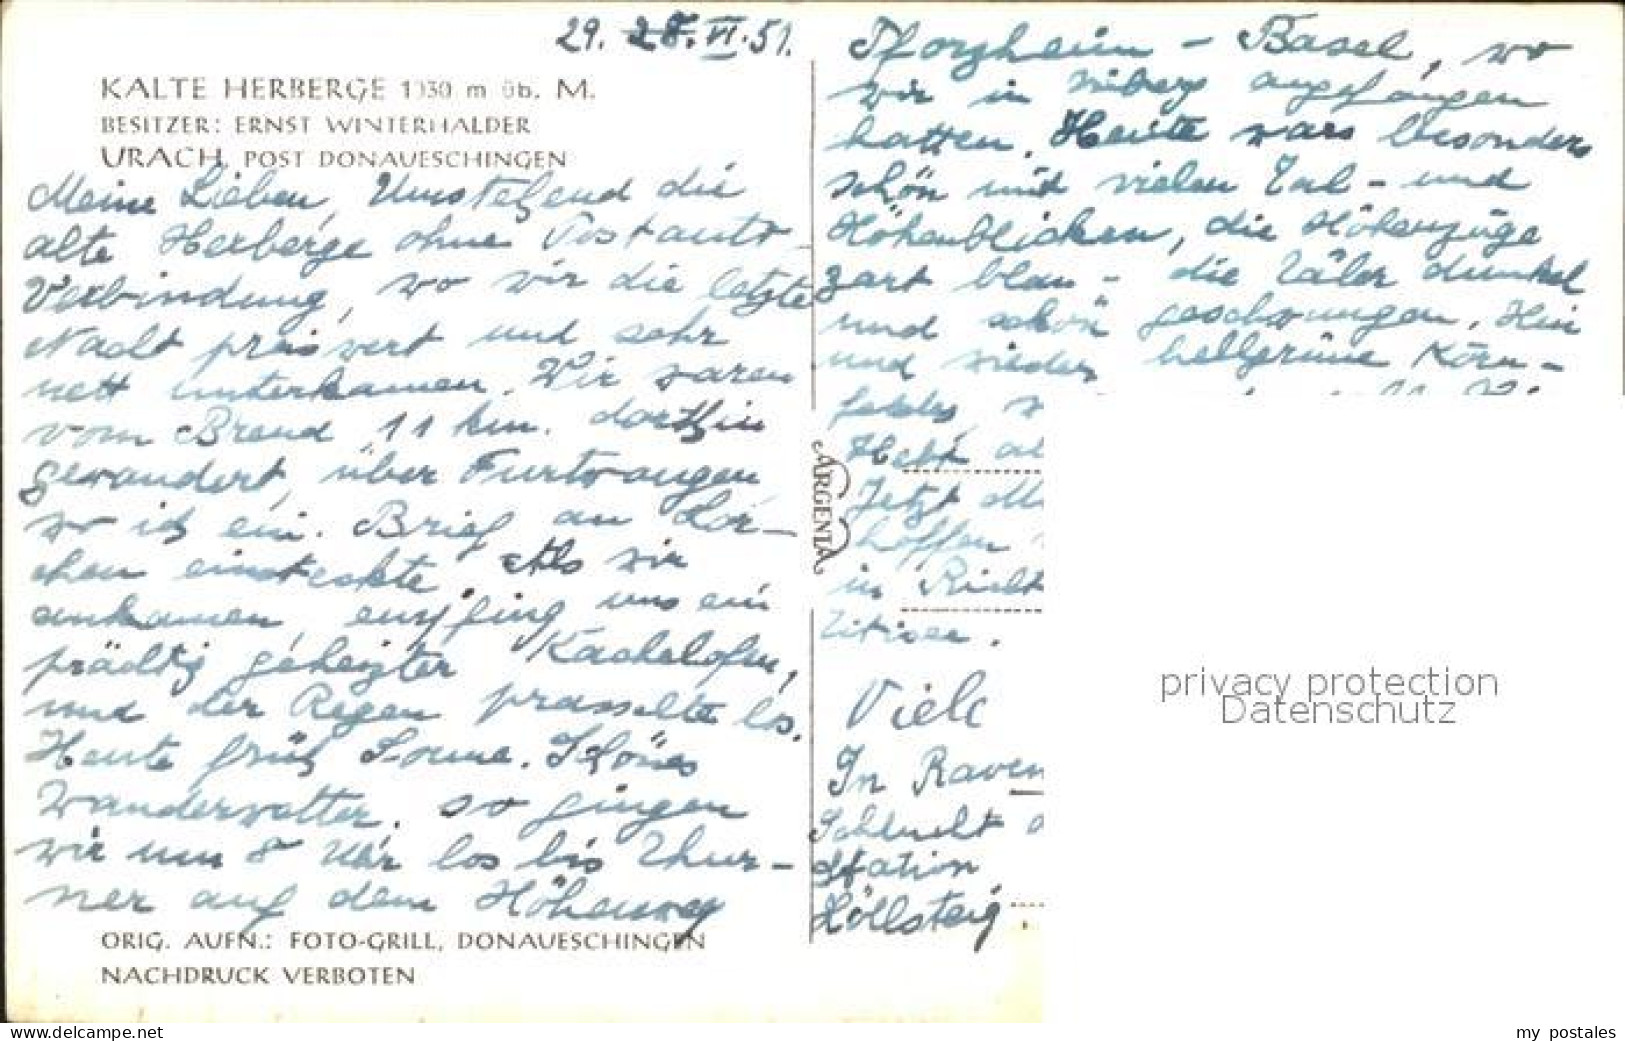 29. 28. VI. 51.
KALTE HERBERGE 1030 m üb. M.
BESITZER: ERNST WINTERHALDER
URACH, POST DONAUESCHINGEN
Meine Lieben, Umstehend die
alte Herberge ohne Postauto-
Verbindung, wo wir die letzte
Nacht preiswert und sehr
nett unterkamen. Wir waren
vom Brend 11 km. dorthin
gewandert, über Furtwangen
wo ich ein. Brief an Lor-
chen einsteckte. Als wir
ankamen, empfing uns ein
prächtig geheizter Kachelofen,
und der Regen prasselte los.
Heute früh Sonne. Schönes
Wanderwetter. so gingen
wir um 8 Uhr los bis Thur-
ner auf dem Höhenweg
ORIG. AUFN.: FOTO-GRILL, DONAUESCHINGEN
NACHDRUCK VERBOTEN
ARGENTA
Pforzheim - Basel, wo
wir in angefangen
hatten. Heute wars besonders
schön mit vielen Tal- und
Höhenblicken, die Höhenzüge
zart blau - die Täler dunkel
und schön geschwungen. Hin
und wieder hellgrüne Korn-
felder,
Jetzt
hoffen
in Richt
Titisee.
Viele
In Raven
Schlucht
Station
Höllsteig.
privacy protection
Datenschutz
www.delcampe.net
my_postales